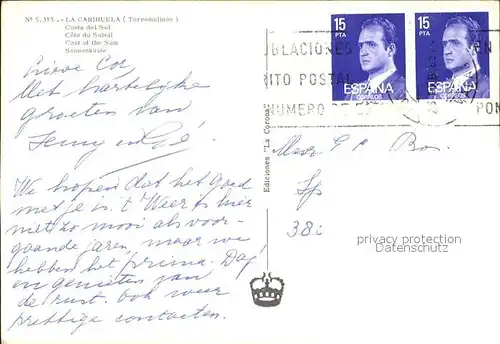 Nº 5.355.- LA CARIHUELA (Torremolinos)
Costa del Sol
Côte du Soleil
Cast of the Sun
Sonnenküste
Lieve Cor,
Met hartelijke
groeten van
Jenny en
We hopen dat het goed
met je is. 't Weer is hier
niet zo mooi als voor-
gaande jaren, maar we
hebben het prima. Dag!
en genieten van
de rust. Ook weer
prettige contacten.
Ediciones "La Corona"
15
PTA
ESPAÑA
CORREOS
15
PTA
ESPAÑA
BLACIONES
ITO POSTAL
NUMERO
EN
PON
Mevr.
380
privacy protection
Datenschutz